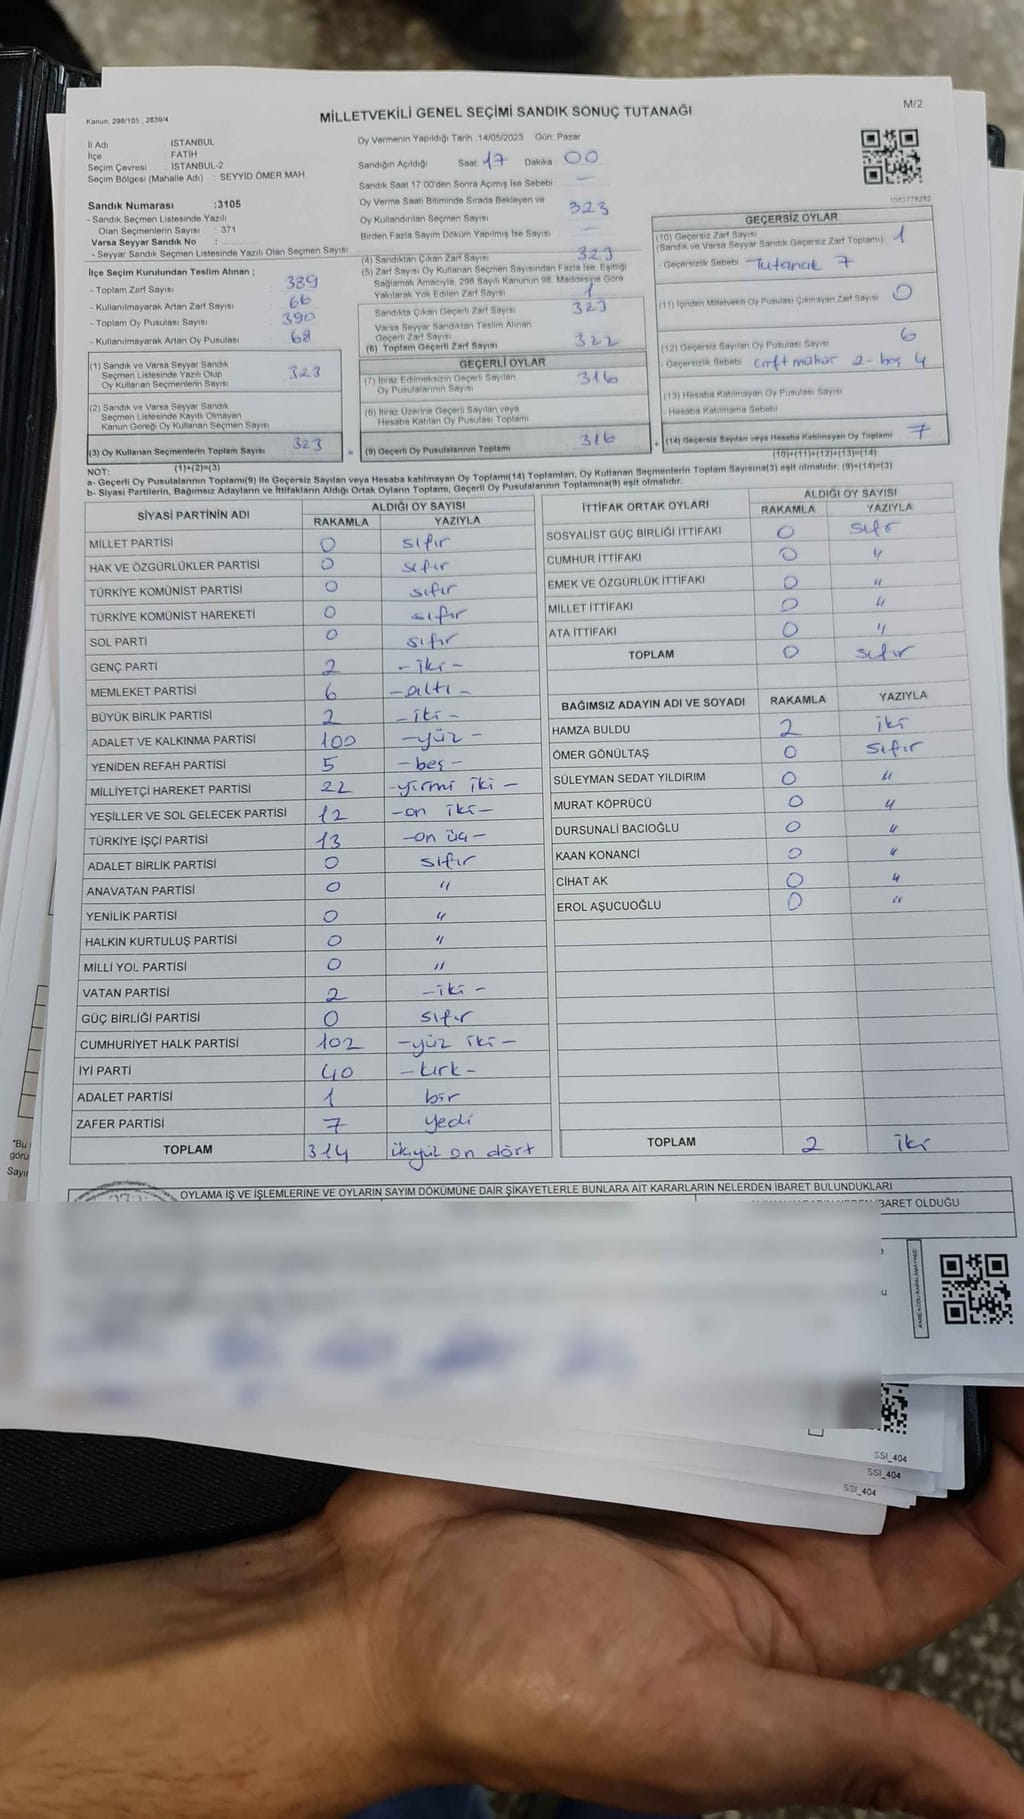 Kanun: 298/105 , 2839/4
MİLLETVEKİLİ GENEL SEÇİMİ SANDIK SONUÇ TUTANAĞI
M/2
İl Adı : İSTANBUL
İlçe : FATİH
Seçim Çevresi : İSTANBUL-2
Seçim Bölgesi (Mahalle Adı) : SEYYİD ÖMER MAH.
Sandık Numarası :3105
- Sandık Seçmen Listesinde Yazılı
Olan Seçmenlerin Sayısı : 371
Varsa Seyyar Sandık No :
- Seyyar Sandık Seçmen Listesinde Yazılı Olan Seçmen Sayısı
İlçe Seçim Kurulundan Teslim Alınan ;
- Toplam Zarf Sayısı : 389
- Kullanılmayarak Artan Zarf Sayısı : 66
- Toplam Oy Pusulası Sayısı : 390
- Kullanılmayarak Artan Oy Pusulası : 68
(1) Sandık ve Varsa Seyyar Sandık
Seçmen Listesinde Yazılı Olup
Oy Kullanan Seçmenlerin Sayısı : 323
(2) Sandık ve Varsa Seyyar Sandık
Seçmen Listesinde Kayıtlı Olmayan
Kanun Gereği Oy Kullanan Seçmen Sayısı :
(3) Oy Kullanan Seçmenlerin Toplam Sayısı : 323
(1)+(2)=(3)
Oy Vermenin Yapıldığı Tarih :14/05/2023 Gün: Pazar
Sandığın Açıldığı Saat: 17 Dakika : 00
Sandık Saat 17:00'den Sonra Açımış İse Sebebi : —
Oy Verme Saati Bitiminde Sırada Bekleyen ve
Oy Kullandırılan Seçmen Sayısı : 323
Birden Fazla Sayım Döküm Yapılmış İse Sayısı : —
(4) Sandıktan Çıkan Zarf Sayısı : 323
(5) Zarf Sayısı Oy Kullanan Seçmen Sayısından Fazla İse, Eşitliği
Sağlamak Amacıyla, 298 Sayılı Kanunun 98. Maddesine Göre
Yakılarak Yok Edilen Zarf Sayısı : 1
Sandıkta Çıkan Geçerli Zarf Sayısı : 323
Varsa Seyyar Sandıktan Teslim Alınan
Geçerli Zarf Sayısı
(6) Toplam Geçerli Zarf Sayısı : 322
GEÇERLİ OYLAR
(7) İtiraz Edilmeksizin Geçerli Sayılan
Oy Pusulalarının Sayısı : 316
(8) İtiraz Üzerine Geçerli Sayılan veya
Hesaba Katılan Oy Pusulası Toplamı :
(9) Geçerli Oy Pusulalarının Toplamı : 316
GEÇERSİZ OYLAR
(10) Geçersiz Zarf Sayısı
(Sandık ve Varsa Seyyar Sandık Geçersiz Zarf Toplamı) : 1
- Geçersizlik Sebebi : Tutanak 7
(11) İçinden Milletvekili Oy Pusulası Çıkmayan Zarf Sayısı : 0
(12) Geçersiz Sayılan Oy Pusulası Sayısı : 6
- Geçersizlik Sebebi : 2-boş 4
(13) Hesaba Katılmayan Oy Pusulası Sayısı :
- Hesaba Katılmama Sebebi :
(14) Geçersiz Sayılan veya Hesaba Katılmayan Oy Toplamı : 7
(10)+(11)+(12)+(13)=(14)
NOT:
a- Geçerli Oy Pusulalarının Toplamı(9) ile Geçersiz Sayılan veya Hesaba katılmayan Oy Toplamı(14) Toplamları, Oy Kullanan Seçmenlerin Toplam Sayısına(3) eşit olmalıdır. (9)+(14)=(3)
b- Siyasi Partilerin, Bağımsız Adayların ve İttifakların Aldığı Ortak Oyların Toplamı, Geçerli Oy Pusulalarının Toplamına(9) eşit olmalıdır.
SİYASİ PARTİNİN ADI ALDIĞI OY SAYISI
RAKAMLA YAZIYLA
MİLLET PARTİSİ 0 sıfır
HAK VE ÖZGÜRLÜKLER PARTİSİ 0 sıfır
TÜRKİYE KOMÜNİST PARTİSİ 0 sıfır
TÜRKİYE KOMÜNİST HAREKETİ 0 sıfır
SOL PARTİ 0 sıfır
GENÇ PARTİ 2 -iki-
MEMLEKET PARTİSİ 6 -altı-
BÜYÜK BİRLİK PARTİSİ 2 -iki-
ADALET VE KALKINMA PARTİSİ 100 -yüz-
YENİDEN REFAH PARTİSİ 5 -beş-
MİLLİYETÇİ HAREKET PARTİSİ 22 -yirmi iki-
YEŞİLLER VE SOL GELECEK PARTİSİ 12 -on iki-
TÜRKİYE İŞÇİ PARTİSİ 13 -on üç-
ADALET BİRLİK PARTİSİ 0 sıfır
ANAVATAN PARTİSİ 0 "
YENİLİK PARTİSİ 0 "
HALKIN KURTULUŞ PARTİSİ 0 "
MİLLİ YOL PARTİSİ 0 "
VATAN PARTİSİ 2 -iki-
GÜÇ BİRLİĞİ PARTİSİ 0 sıfır
CUMHURİYET HALK PARTİSİ 102 -yüz iki-
İYİ PARTİ 40 -kırk-
ADALET PARTİSİ 1 bir
ZAFER PARTİSİ 7 yedi
TOPLAM 314 üçyüz on dört
İTTİFAK ORTAK OYLARI ALDIĞI OY SAYISI
RAKAMLA YAZIYLA
SOSYALİST GÜÇ BİRLİĞİ İTTİFAKI 0 sıfır
CUMHUR İTTİFAKI 0 "
EMEK VE ÖZGÜRLÜK İTTİFAKI 0 "
MİLLET İTTİFAKI 0 "
ATA İTTİFAKI 0 "
TOPLAM 0 sıfır
BAĞIMSIZ ADAYIN ADI VE SOYADI RAKAMLA YAZIYLA
HAMZA BULDU 2 iki
ÖMER GÖNÜLTAŞ 0 sıfır
SÜLEYMAN SEDAT YILDIRIM 0 "
MURAT KÖPRÜCÜ 0 "
DURSUNALİ BACIOĞLU 0 "
KAAN KONANCİ 0 "
CİHAT AK 0 "
EROL AŞUCUOĞLU 0 "
TOPLAM 2 iki
OYLAMA İŞ VE İŞLEMLERİNE VE OYLARIN SAYIM DÖKÜMÜNE DAİR ŞİKAYETLERLE BUNLARA AİT KARARLARIN NELERDEN İBARET BULUNDUKLARI
BARET OLDUĞU
SSİ_404
SSİ_404
SSİ_404